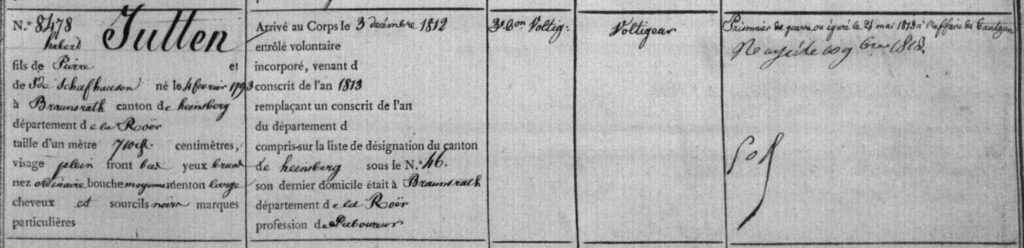 N.º 8478 Jutten
hubert
fils de Pierre et
de Ide Schafhausen né le 4 fevrier 1793
à Braunsrath canton de heinsberg
département de la Roër
taille d'un mètre 710 centimètres,
visage plein front bas yeux bruns
nez ordinaire bouche moyenne menton large
cheveux et sourcils noirs marques
particulières
Arrivé au Corps le 3 decembre 1812
enrôlé volontaire
incorporé, venant d
conscrit de l'an 1813
remplaçant un conscrit de l'an
du département d
compris sur la liste de désignation du canton
de heinsberg sous le N.º 46.
son dernier domicile était à Braunsrath
département de la Roër
profession de Laboureur
3e Bon Voltig.
Voltigeur
Prisonnier de guerre ou égaré le 21 mai 1813 à l'affaire de